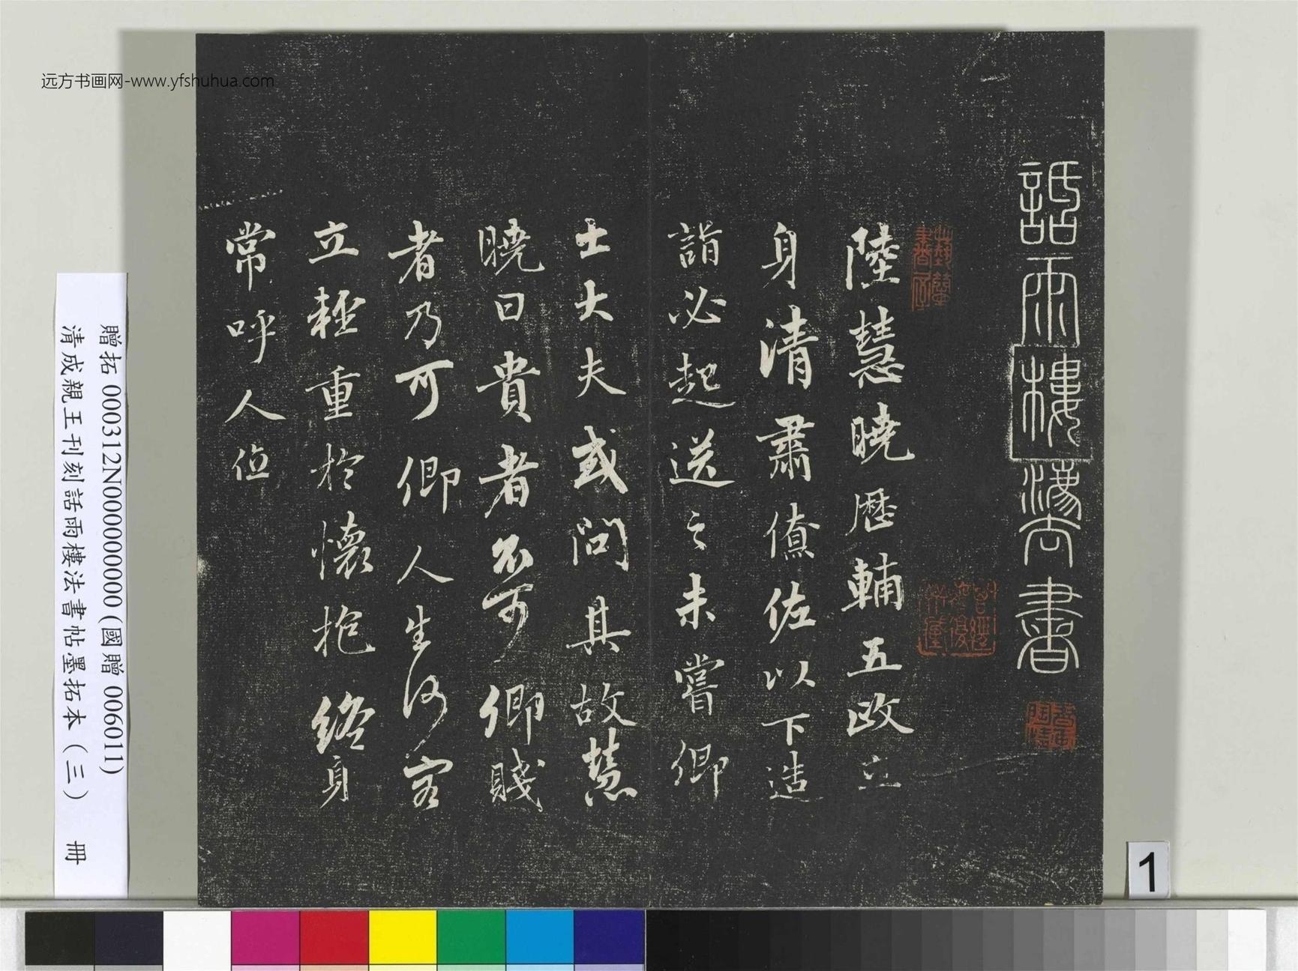 远方书画网-www.yfshuhua.com
話雨樓法書
陸慧曉歷輔五政立
身清肅僚佐以下造
詣必起送之未嘗卿
士大夫或問其故慧
曉曰貴者不可卿賤
者乃可可卿人生何容
立輕重於懷抱終身
常呼人位
贈拓 000312N000000000 (國贈 006011)
清成親王刊刻話雨樓法書帖墨拓本（三） 冊
1